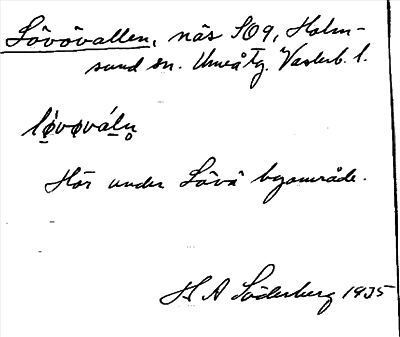 Lövövallen, näs SO9, Holm-
sund sn. Umeå tg. Västerb. l.
lǿvøváln̥
Hör under Lövö byområde.
H A Söderberg 1935